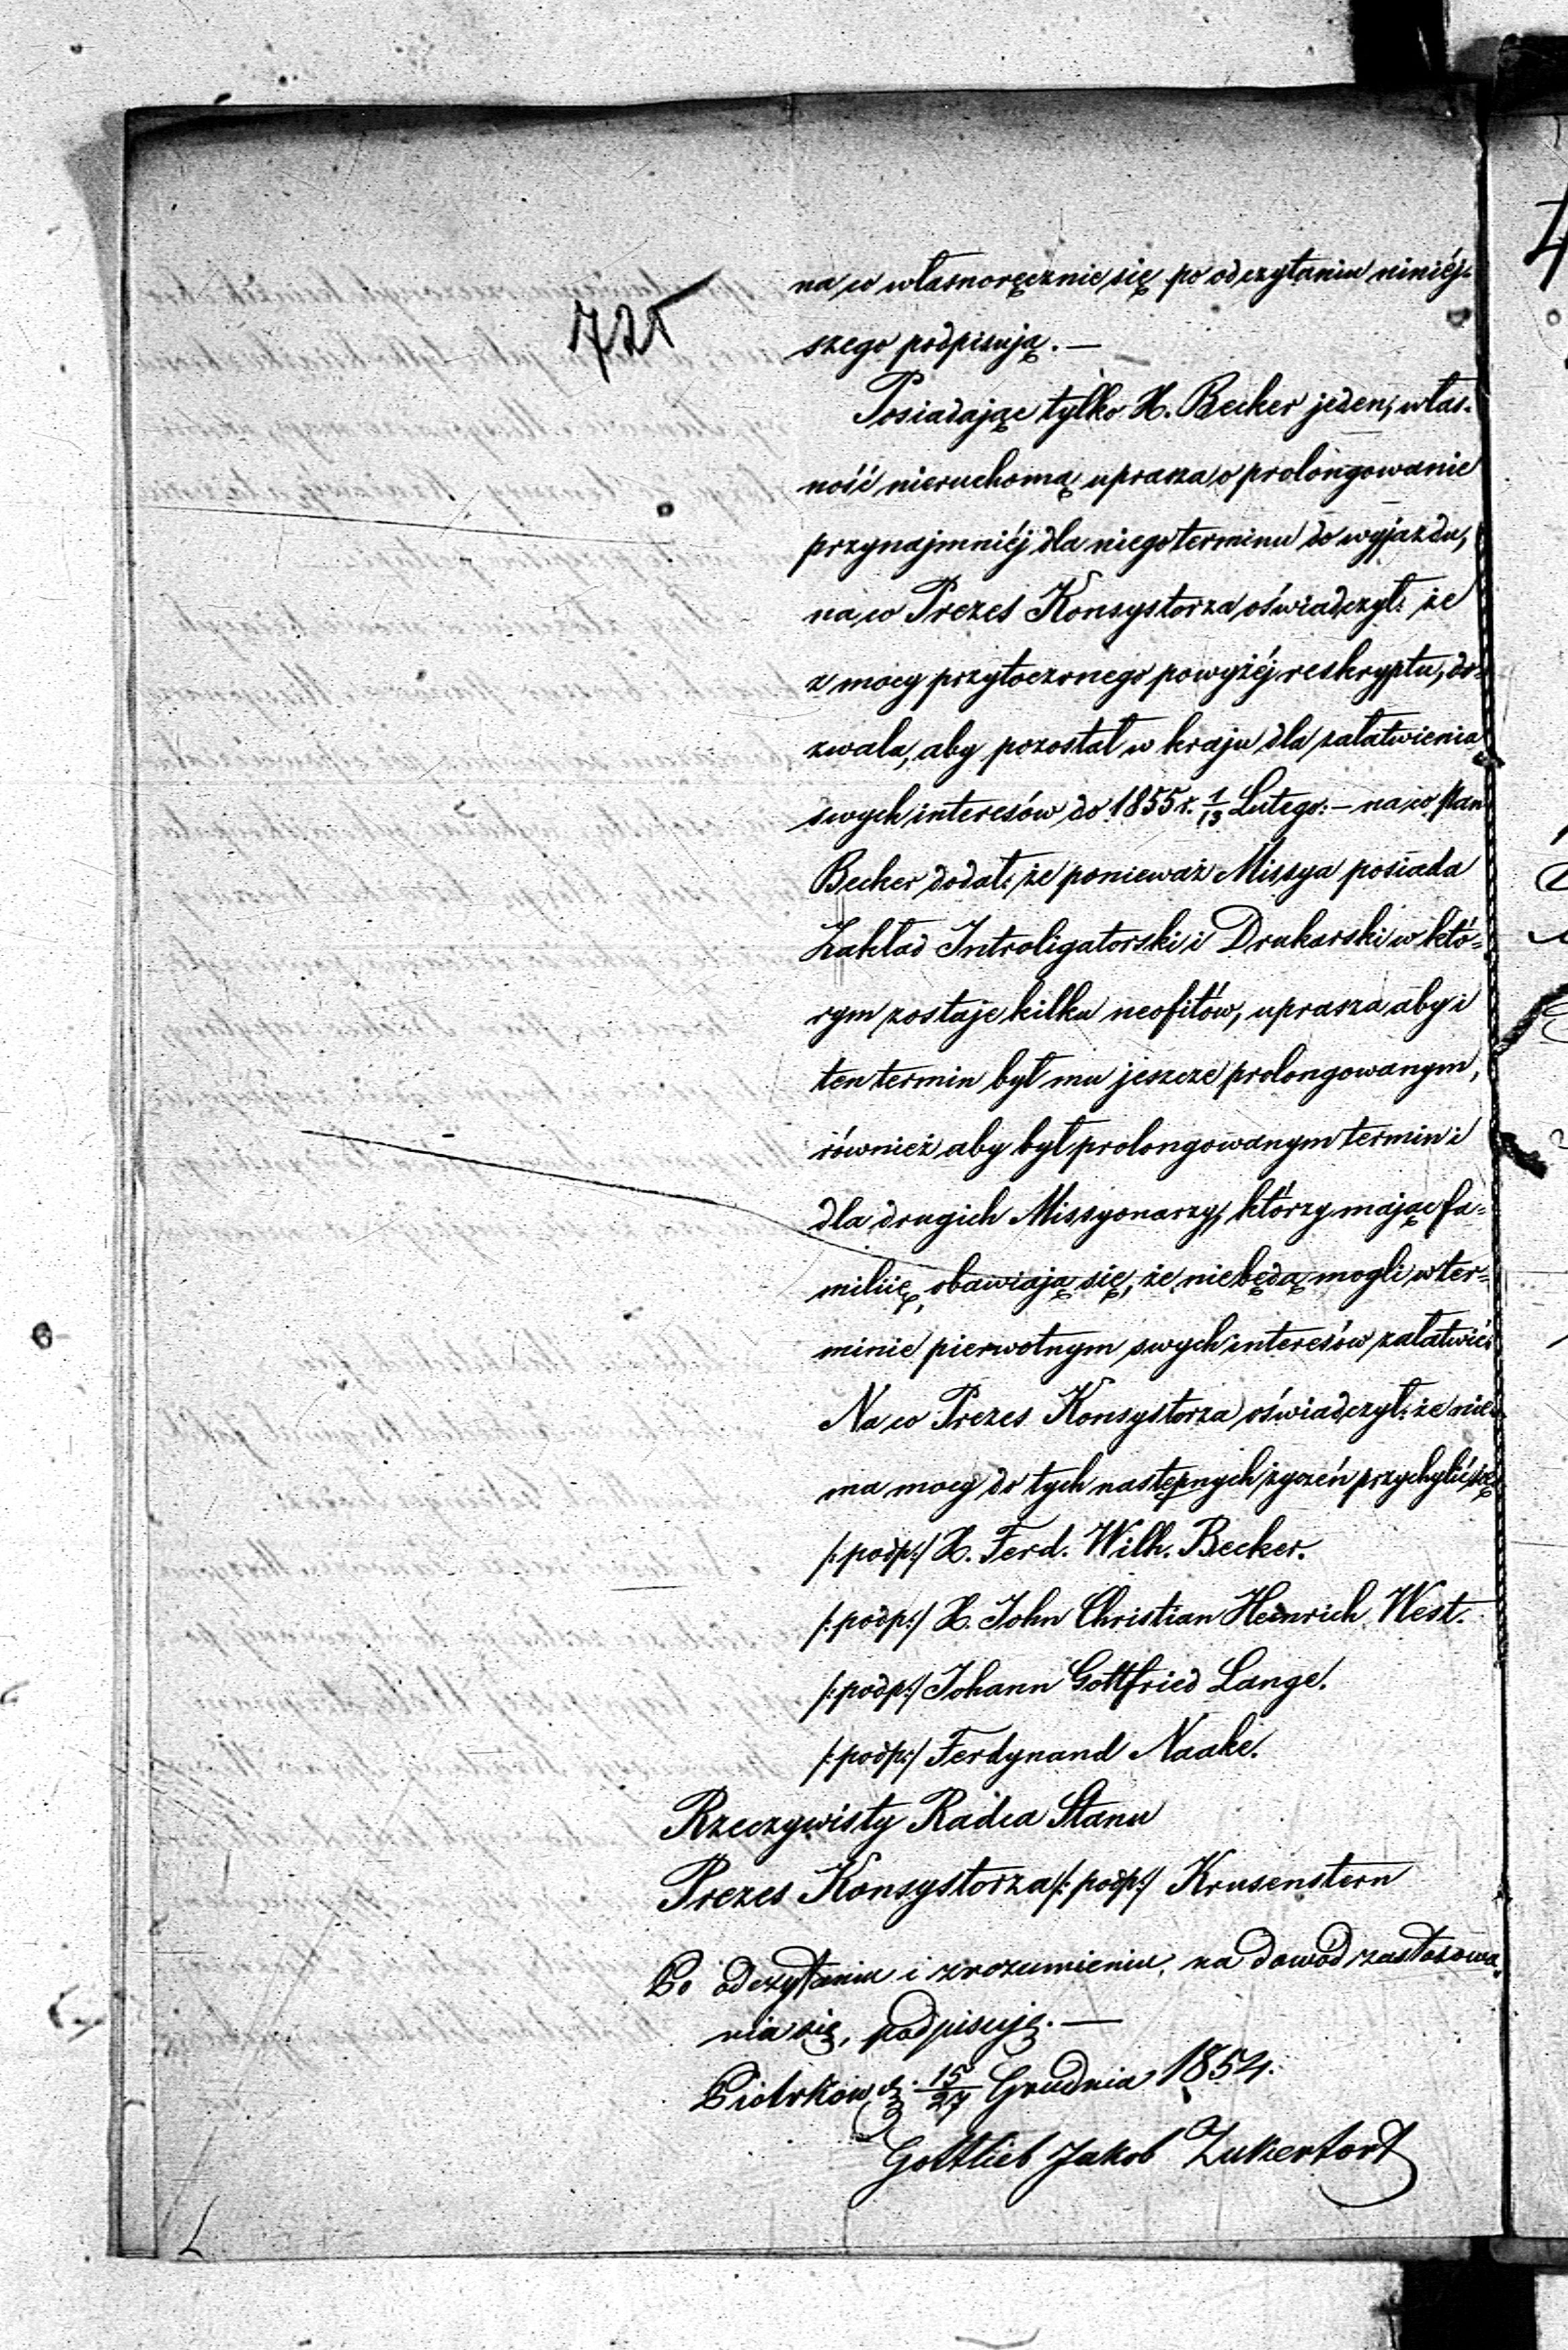 725
na co własnoręcznie się po odczytaniu niniéj-
szego podpisują. —
Posiadając tylko X. Becker jeden, włas-
ność nieruchomą uprasza o prolongowanie
przynajmniéj dla niego terminu do wyjazdu,
na co Prezes Konsystorza oświadczył: że
z mocy przytoczonego powyżéj reskryptu, do-
zwala, aby pozostał w kraju dla załatwienia
swych interesów do 1855 r. 1/13 Lutego: — na co Pan
Becker dodał: że ponieważ Missya posiada
Zakład Introligatorski i Drukarski w któ=
rym zostaje kilku neofitów, uprasza aby i
ten termin był mu jeszcze prolongowanym,
również aby był prolongowanym termin i
dla drugich Missyonarzy, którzy mając fa=
miliię, obawiają się, że niebędą mogli w ter=
minie pierwotnym swych interesów załatwić.
Na co Prezes Konsystorza oświadczył: że nie
ma mocy do tych następnych życzeń przychylić się
/:podp:/ X. Ferd. Wilh. Becker.
/:podp:/ X. John Christian Heinrich West.
/:podp:/ Johann Gottfried Lange.
/:podp:/ Ferdynand Naake.
Rzeczywisty Radca Stanu
Prezes Konsystorza /:podp:/ Krusenstern
Po odczytaniu i zrozumieniu, na dowód zastosowa-
nia się, podpisuję. —
Piotrków d. 15/27 Grudnia 1854.
Gottlieb Jakob Zukertort